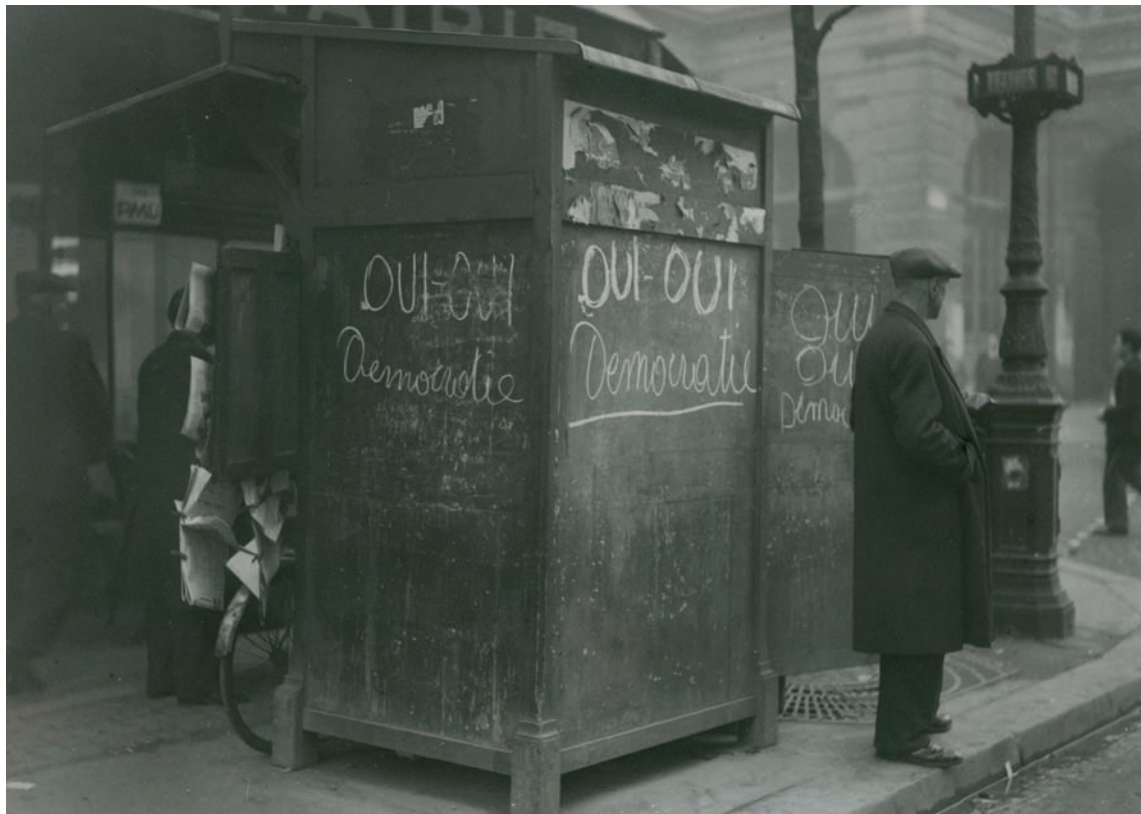 PMU
OUI-OUI
Democratie
OUI-OUI
Democratie
OUI
OUI
Démoc